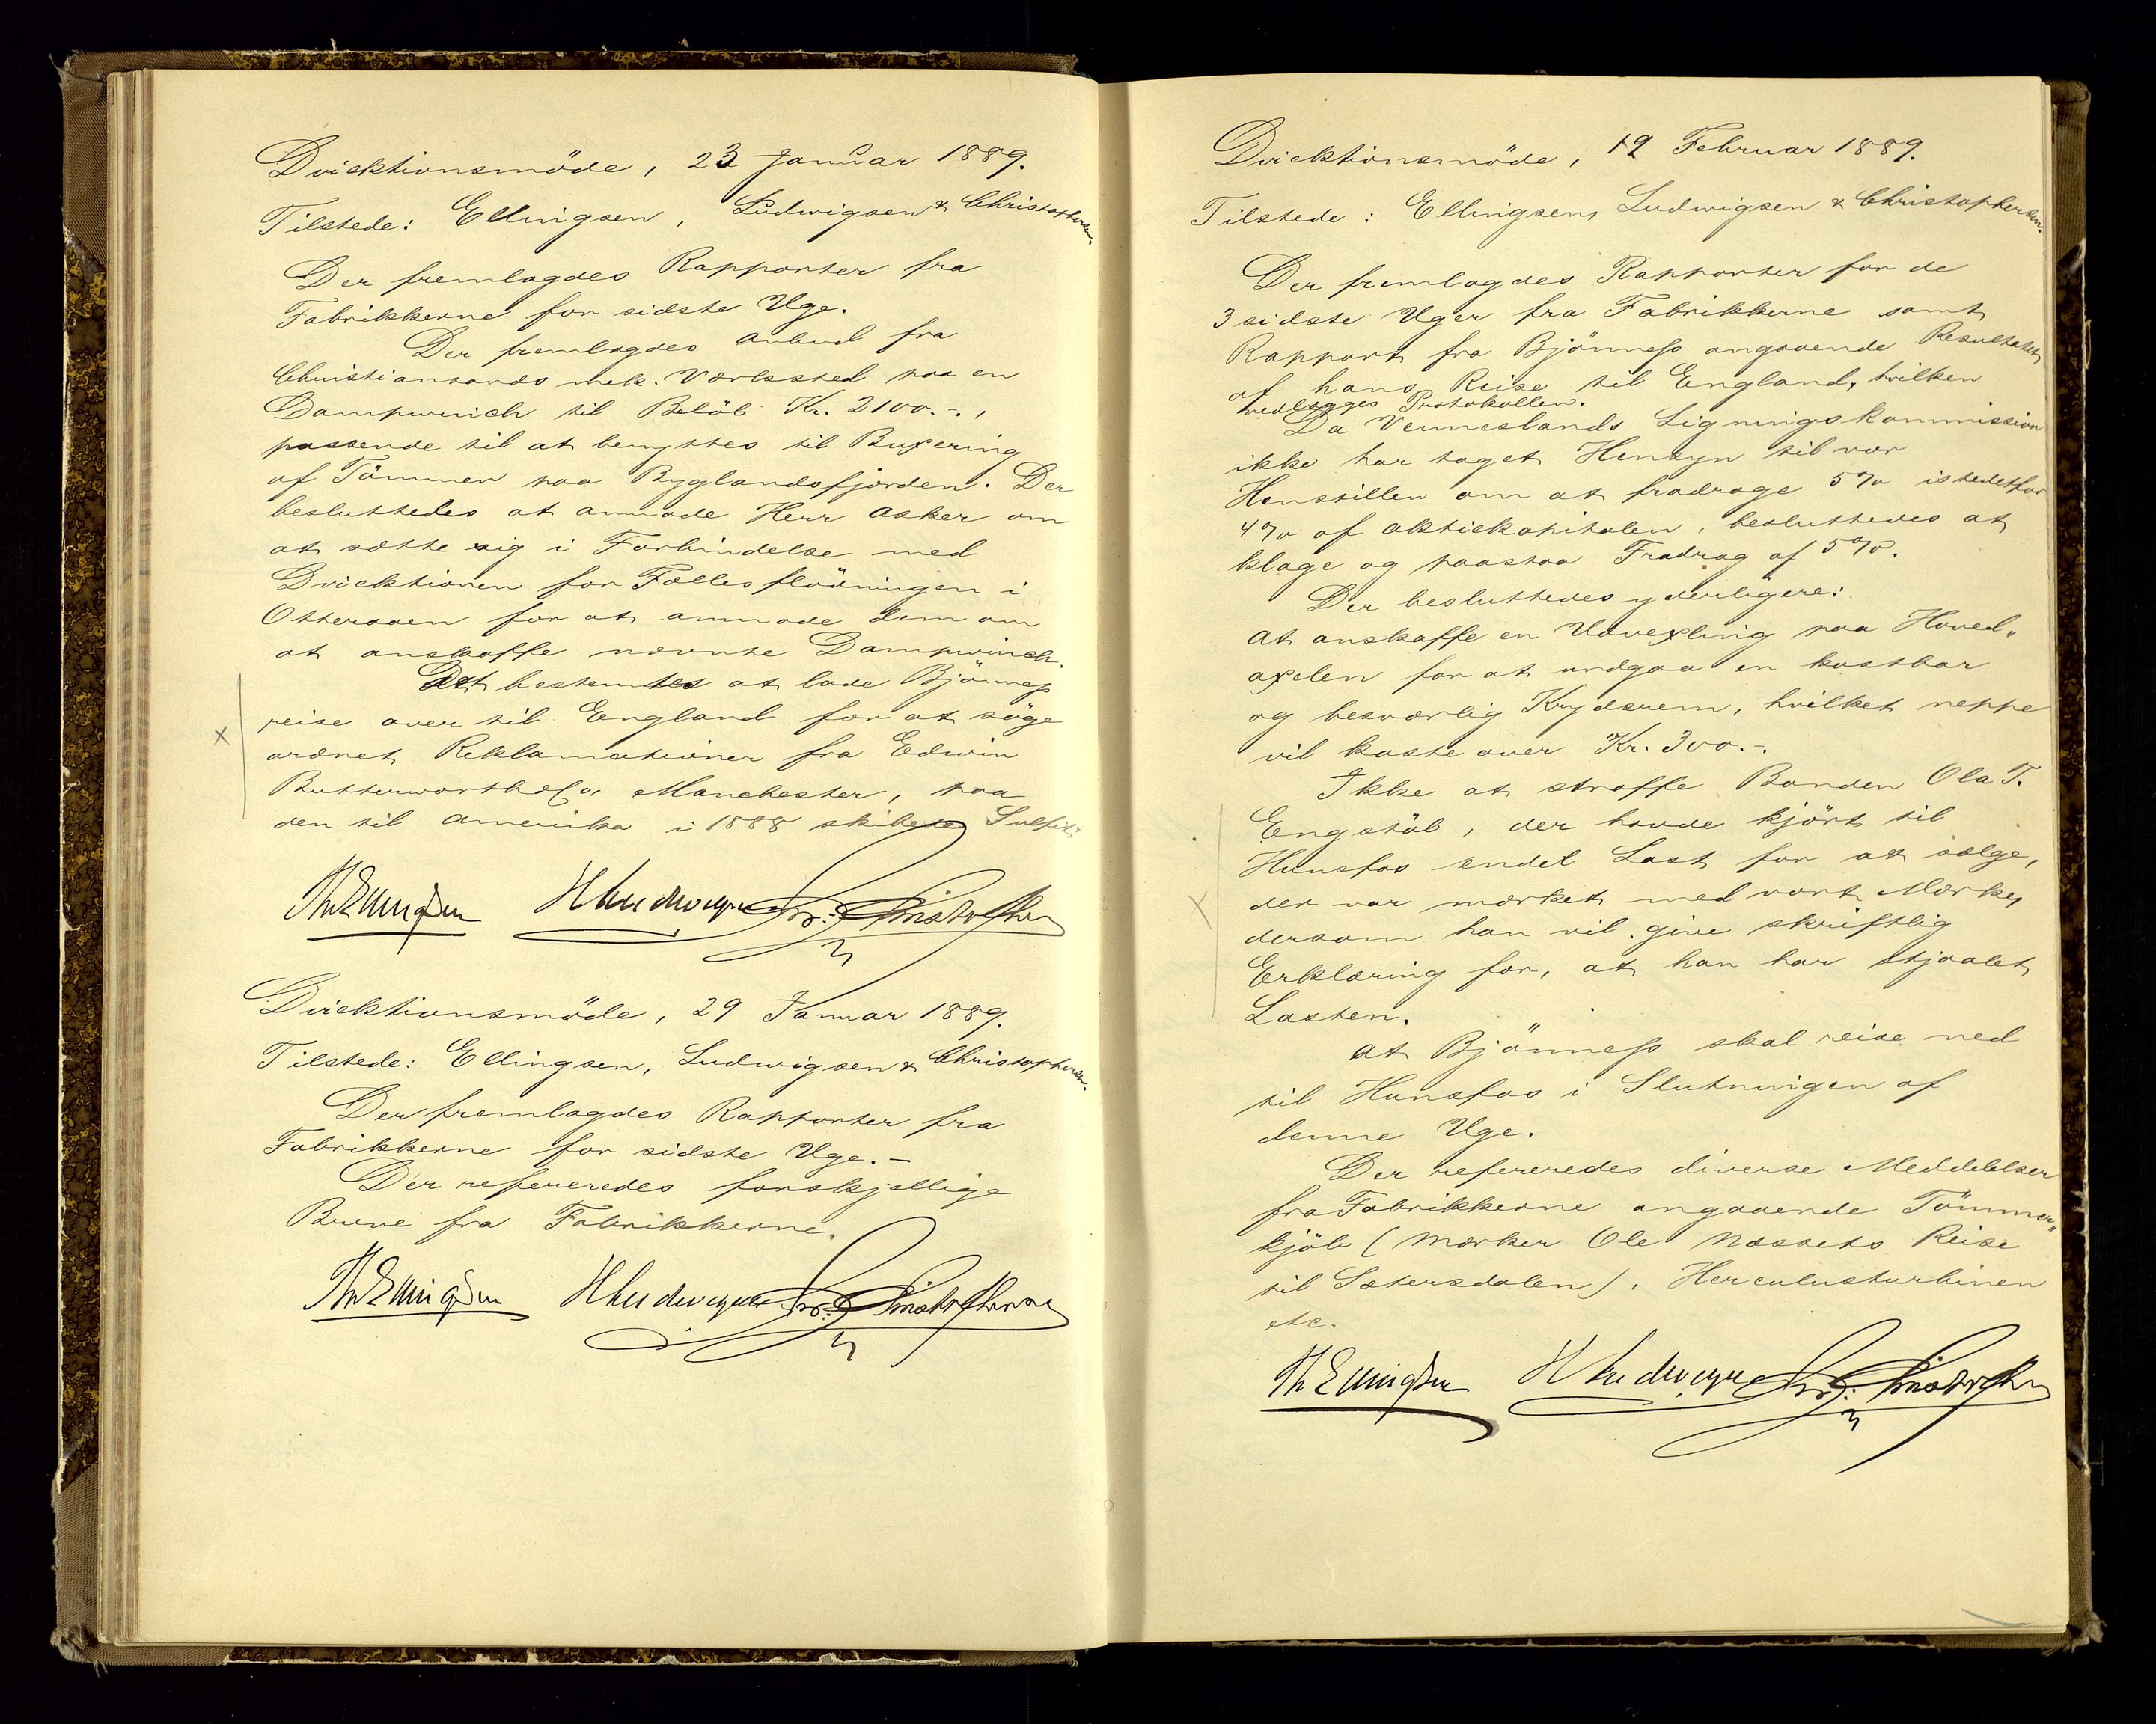 Direktionsmöde, 23 Januar 1889.
Tilstede: Ellingsen, Ludwigsen & Christophersen.
Der fremlagdes Rapporter fra
Fabrikkerne for sidste Uge.
Der fremlagdes Anbud fra
Christiansands mek. Værksted paa en
Dampwinch til Belöb Kr. 2100.-,
passende til at benyttes til Buxering
af Tömmer paa Byglandsfjorden. Der
besluttedes at anmode Herr Asker om
at sætte sig i Forbindelse med
Direktionen for Fællesflödningen i
Otteraaen for at anmode dem om
at anskaffe nævnte Dampwinch.
Det bestemtes at lade Bjönness
reise over til England for at söge
ordnet Reklamationer fra Edwin
Butterworth & Co, Manchester, paa
den til Amerika i 1888 skibede Sulfit.
Th Ellingsen H Ludwigsen Chr. Christophersen
Direktionsmöde, 29 Januar 1889.
Tilstede: Ellingsen, Ludwigsen & Christophersen.
Der fremlagdes Rapporter fra
Fabrikkerne for sidste Uge. -
Der refereredes forskjellige
Breve fra Fabrikkerne.
Th Ellingsen H Ludwigsen Chr. Christophersen
Direktionsmöde, 19 Februar 1889.
Tilstede: Ellingsen, Ludwigsen & Christophersen.
Der fremlagdes Rapporter for de
3 sidste Uger fra Fabrikkerne samt
Rapport fra Bjönness angaaende Resultatet
af hans Reise til England, hvilken
vedlægges Protokollen.
Da Venneslands Ligningskommission
ikke har taget Hensyn til vor
Henstillen om at fradrage 5% istedetfor
4% af Aktiekapitalen, besluttedes at
klage og paastaa Fradrag af 5%.
Der besluttedes yderligere:
At anskaffe en Udvexling paa Hoved„
axelen for at undgaa en kostbar
og besværlig Krydsrem, hvilket neppe
vil koste over Kr. 300.-.
Ikke at straffe Bonden Ola T.
Engstöl, der havde kjört til
Hunsfos endel Last for at sælge,
der var mærket med vort Mærke,
dersom han vil give skriftlig
Erklæring for, at han har stjaalet
Lasten.
At Bjönness skal reise ned
til Hunsfos i Slutningen af
denne Uge.
Der refereredes diverse Meddelelser
fra Fabrikkerne angaaende Tömmer„
kjöb (Mærker Ole Næssets Reise
til Sætersdalen), Herculusturbinen
etc.
Th Ellingsen H Ludwigsen Chr. Christophersen